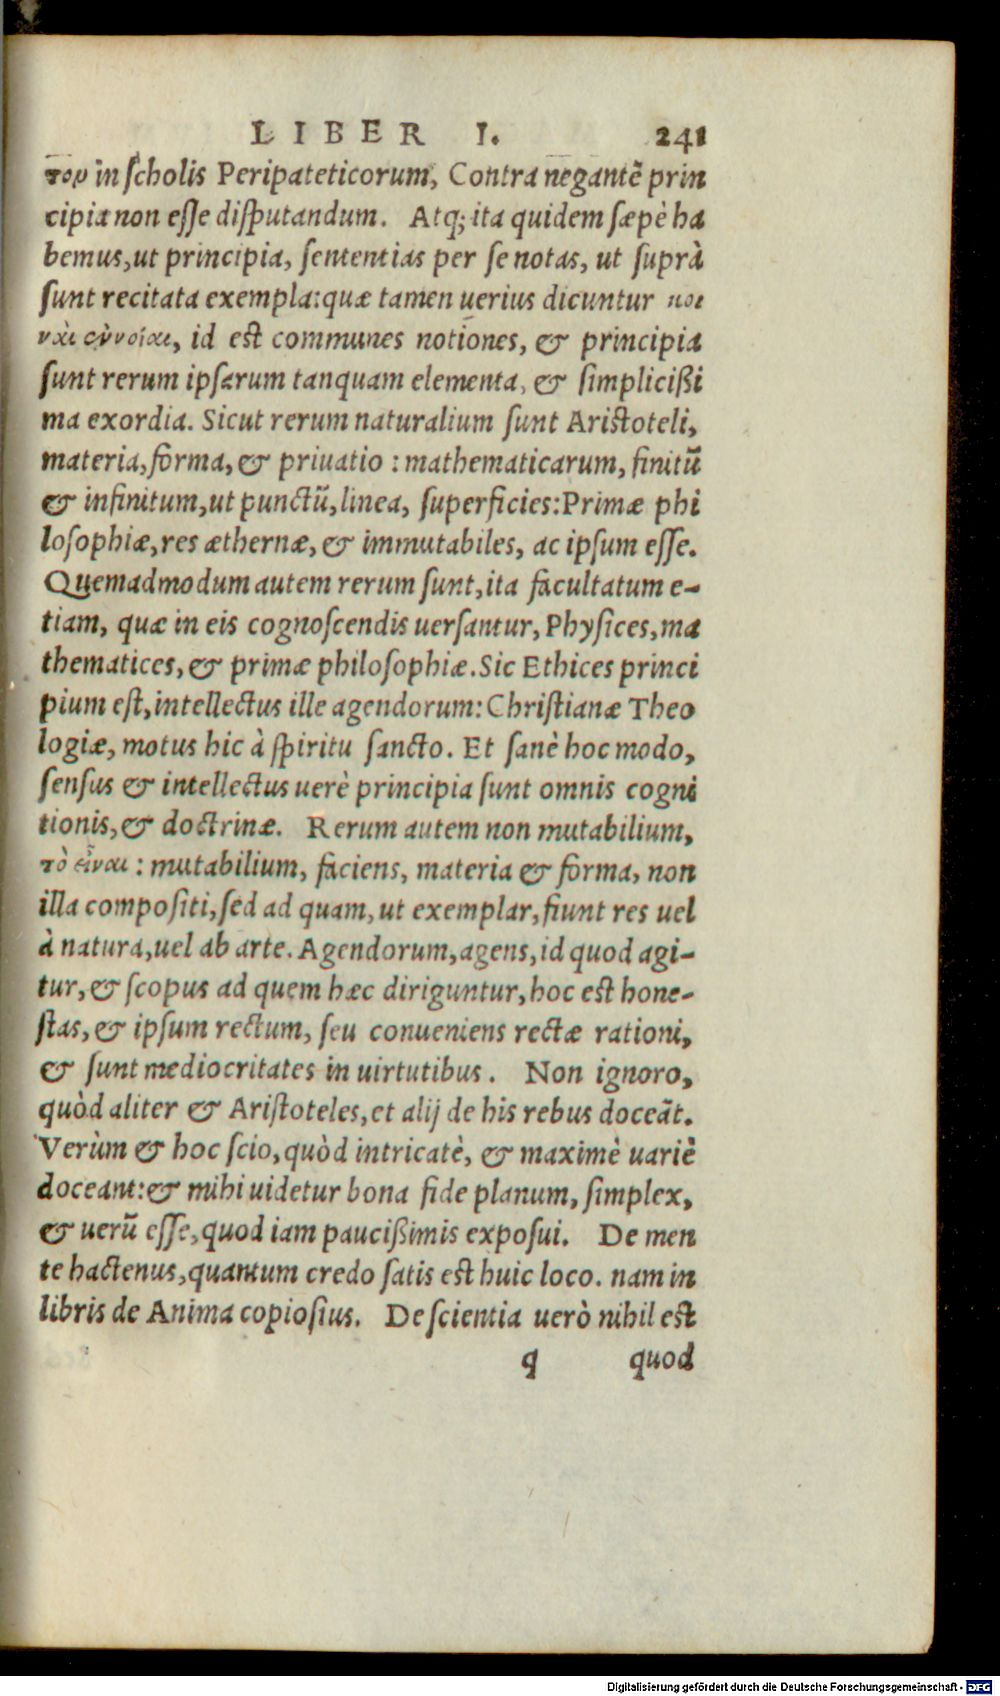 LIBER I. 241
τον in scholis Peripateticorum, Contra negantē prin
cipia non esse disputandum. Atq; ita quidem sæpè ha
bemus, ut principia, sententias per se notas, ut suprà
sunt recitata exempla: quæ tamen uerius dicuntur κοι
ναὶ ἐννοίαι, id est communes notiones, & principia
sunt rerum ipsarum tanquam elementa, & simplicißi
ma exordia. Sicut rerum naturalium sunt Aristoteli,
materia, forma, & priuatio: mathematicarum, finitū
& infinitum, ut punctū, linea, superficies: Primæ phi
losophiæ, res æthernæ, & immutabiles, ac ipsum esse.
Quemadmodum autem rerum sunt, ita facultatum e-
tiam, quæ in eis cognoscendis uersantur, Physices, ma
thematices, & primæ philosophiæ. Sic Ethices princi
pium est, intellectus ille agendorum: Christianæ Theo
logiæ, motus hic à spiritu sancto. Et sanè hoc modo,
sensus & intellectus uerè principia sunt omnis cogni
tionis, & doctrinæ. Rerum autem non mutabilium,
τὸ εἶναι: mutabilium, faciens, materia & forma, non
illa compositi, sed ad quam, ut exemplar, fiunt res uel
à natura, uel ab arte. Agendorum, agens, id quod agi-
tur, & scopus ad quem hæc diriguntur, hoc est hone-
stas, & ipsum rectum, seu conueniens rectæ rationi,
& sunt mediocritates in uirtutibus. Non ignoro,
quòd aliter & Aristoteles, et alij de his rebus doceāt.
Verùm & hoc scio, quòd intricatè, & maximè uariè
doceant: & mihi uidetur bona fide planum, simplex,
& uerū esse, quod iam paucißimis exposui. De men
te hactenus, quantum credo satis est huic loco. nam in
libris de Anima copiosius. De scientia uerò nihil est
q quod
Digitalisierung gefördert durch die Deutsche Forschungsgemeinschaft - DFG